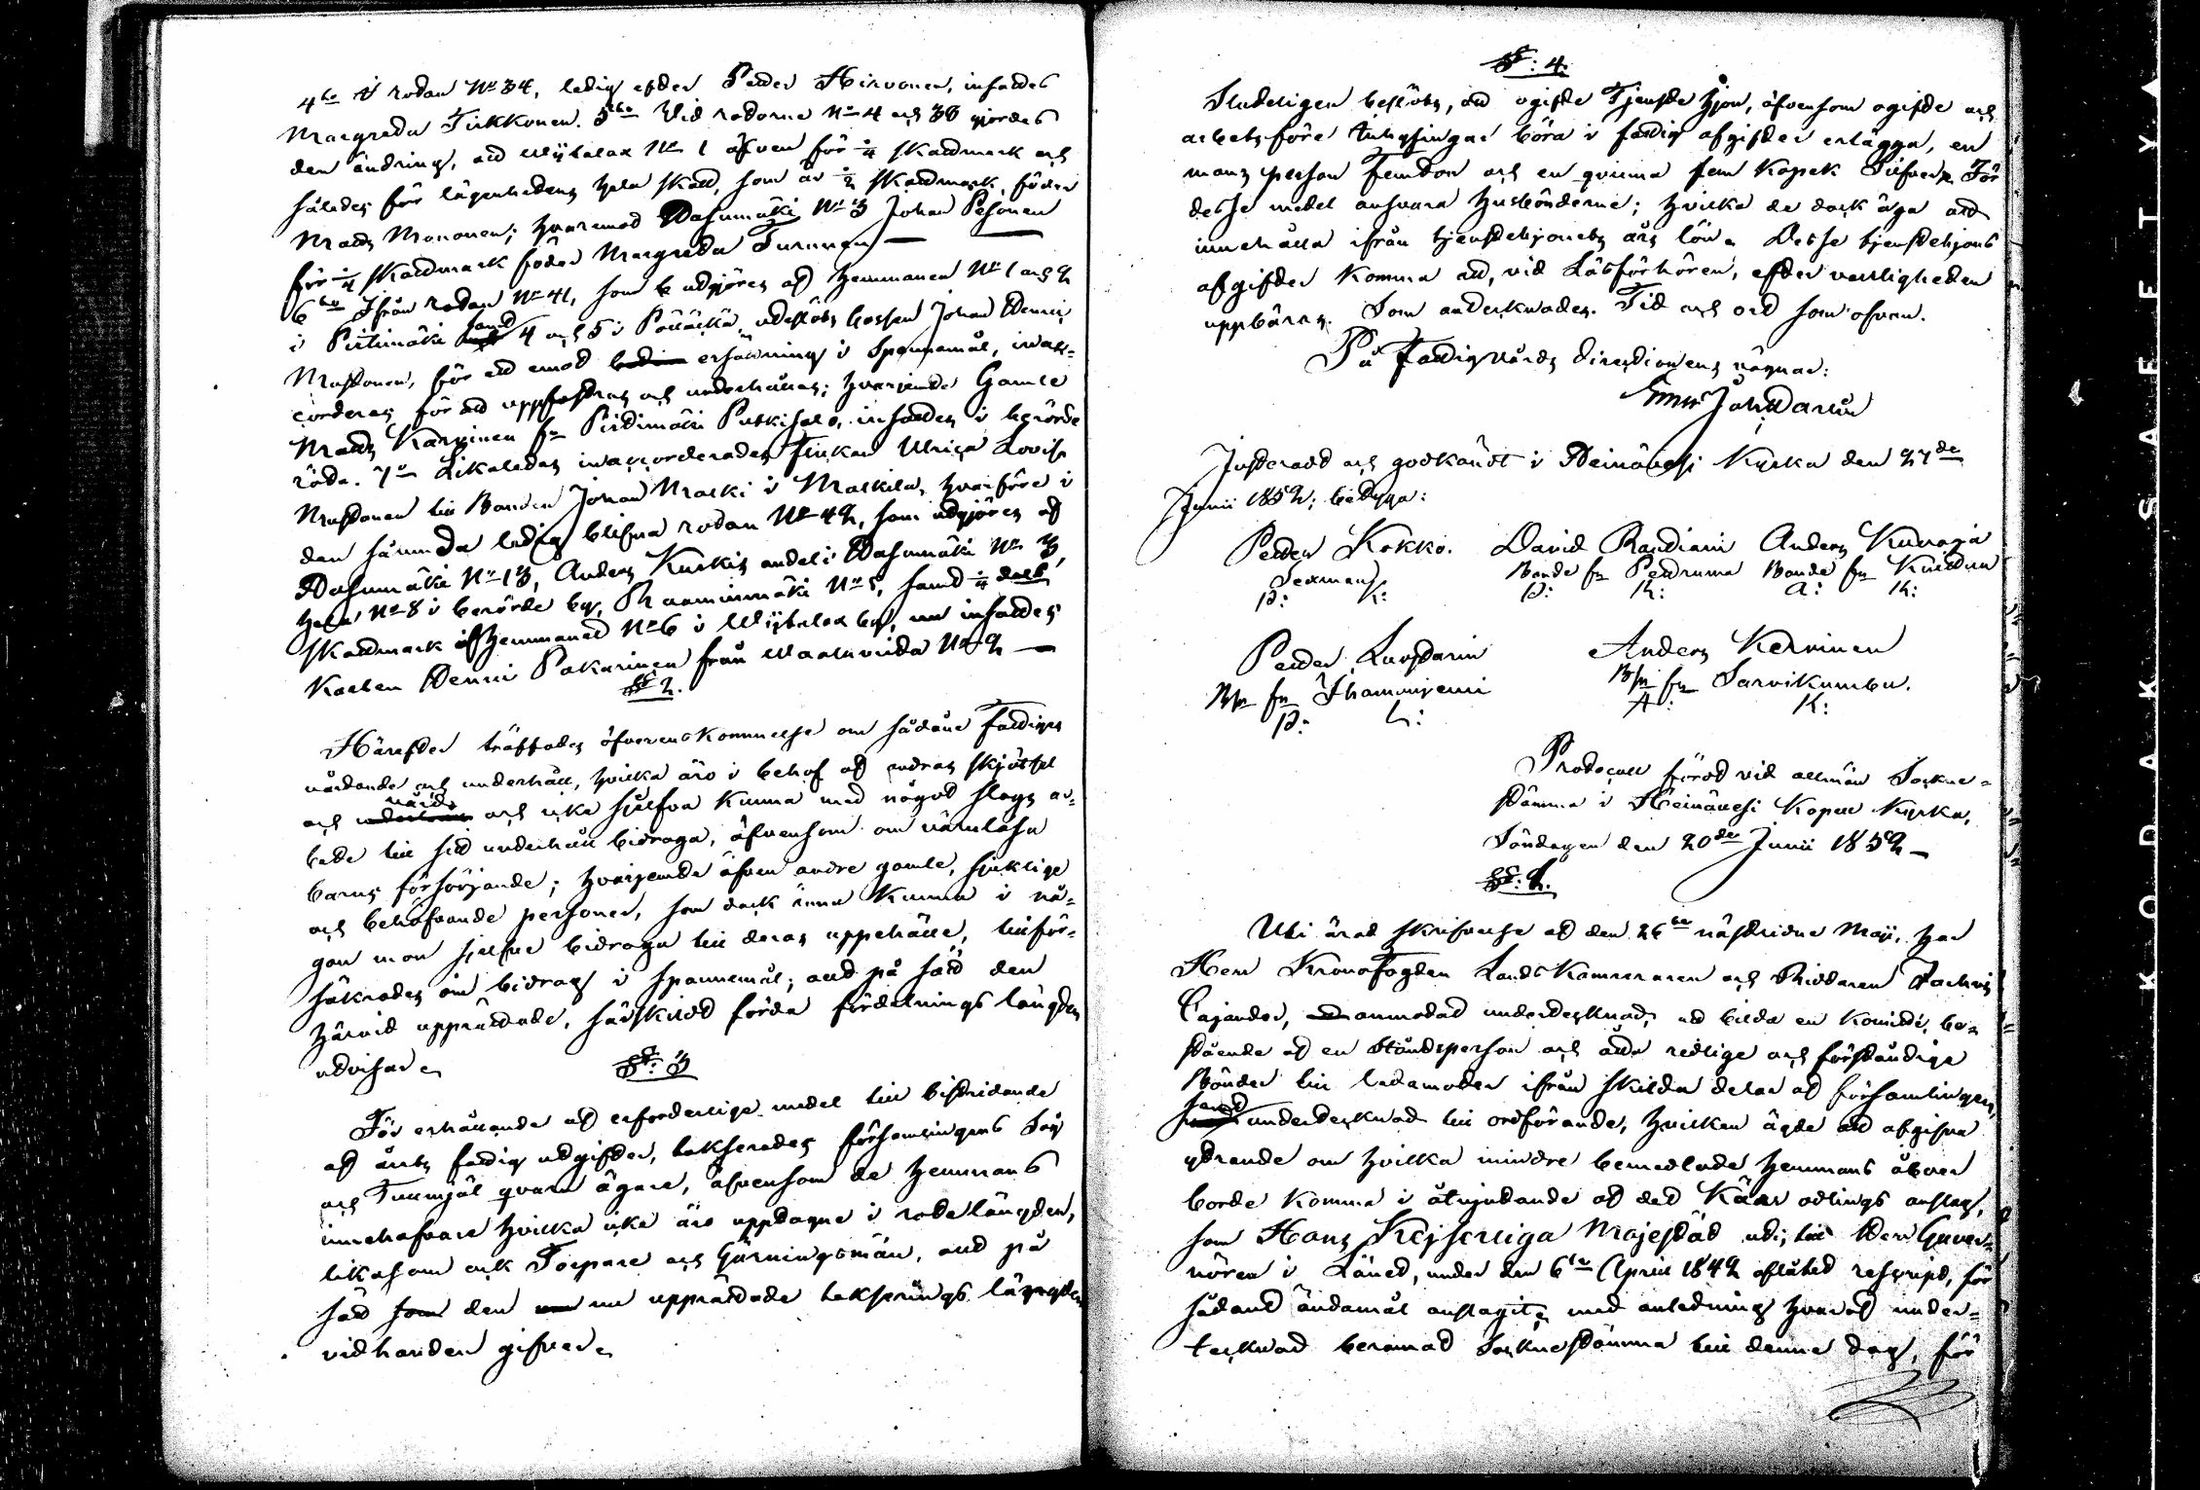 4to I rodan No 34, ledig efter Petter Hirvonen, insattes
Margreta Tirkkonen. 5to Vid rodorne No 4 och 38 gjordes
den ändring, att No 1 äfven för 1/4 Skattmark och
således för lägenhetens hela skatt, som är 1/2 Skattmark, föder
Matts Mononen; hvaremot Wasumäki No 3 Johan Pesonen
för 1/4 Skattmark föder Margreta Turunen —
6to Ifrån rodan No 41, som utgöres af hemmanen No 1 och 2
i Pirtimäki samt 4 och 5 i uteslöts Gossen Johan Henric
Mustonen, för att emot ersättning i Spannemål, inac-
corderas för att uppfostras och underhållas; hvarjemte Gamle
Matts Karvinen fr Pirtimäki Putkisalo, insattes i berörde
roda. 7o Likaledes inaccorderades Flickan Ulrica Lovisa
Mustonen till Bonden Johan Malki i Malkila, hvarföre i
den härunda ledig blifna rodan No 42, som utgöres af
Wasumäki No 13, Anders Kurkis andel i Wasumäki No 3,
hela No 8 i berörde by, No 5, samt 1/4 dels
Skattmark af hemmanet No 6 i by, nu insattes
Karlen Henric Pakarinen från No 2 —
§ 2.
Härefter träffades öfverenskommelse om sådane Fattiges
vårdande och underhåll, hvilka äro i behof af andras skjötsel
och vård och icke sjelfva kunna med något slags ar-
bete till sitt underhåll bidraga, äfvensom om värnlösa
barns försörjande; hvarjemte äfven andre gamle, sjuklige
och behöfvande personer, som dock ännu kunna i nå-
gon mon sjelfve bidraga till deras uppehälle, tillför-
säkrades om bidrag i Spannemål; allt på sätt den
härvid upprättade, särskildt förda fördelnings längden
utvisar.
§: 3
För erhållande af erforderlige medel till bistridande
af årets fattig utgifter, taxerades församlingens Såg
och Tullmjöl qvarn ägare, äfvensom de hemmans
innehafvare hvilka icke äro upptagne i rodelängden,
likasom ock Torpare och Gärningsmän, allt på
sätt den nu upprättade taxerings längden
vidhanden gifver.
§: 4.
Sluteligen beslöts, att ogifte Tjenste hjon, äfvensom ogifte och
arbetsföre Inhysingar böra i fattig afgifter erlägga, en
mans person Femton och en qvinna fem Kopek Silfver. För
desse medel ansvara husbönderne; hvilka de dock äga att
innehålla ifrån tjenstehjonets års lön. Desse tjenstehjons
afgifter komma att, vid Läsförhören, efter vanligheten
uppbäras. Som antecknades. Tid och ort som ofvan.
På Fattigvårds Directionens vägnar:
Justeradt och godkändt i Heinävesi Kyrka den 27de
Junii 1852; betyga:
Petter Kokko. David Rautiain Anders Kuvaja
Sexman Bonde fr Petruma Bonde fr
P: K: D: R: A: K:
Petter Luostarin Anders Kervinen
Bn fr Ihamaniemi Bn fr Sarvikumbu.
P: L: A: K:
Protocoll fördt vid allmän Sockne-
stämma i Heinävesi Kapell Kyrka,
Söndagen den 20de Junii 1852 —
§: 1.
Uti ärad skrifvelse af den 26te nästvidne Maji, har
Herr Kronofogden LandsKamreraren och Riddaren Zachris
Cajander, anmodat undertecknad, att bilda en Komité, be-
stående af en ståndsperson och åtta redlige och förståndige
Bönder till ledamöter ifrån skilda delar af församlingen,
samt undertecknad till ordförande, hvilken ägde att afgifva
yttrande om hvilka mindre bemedlade hemmans åboer
borde komma i åtnjutande af det Kärr odlings anslag,
som Hans Kejserliga Majestät uti, till Herr Guver-
nören i Länet, under den 6te April 1842 aflåtet rescript, för
sådant ändamål anslagit; med anledning hvaraf under-
tecknad beramat Socknestämma till denne dag, för